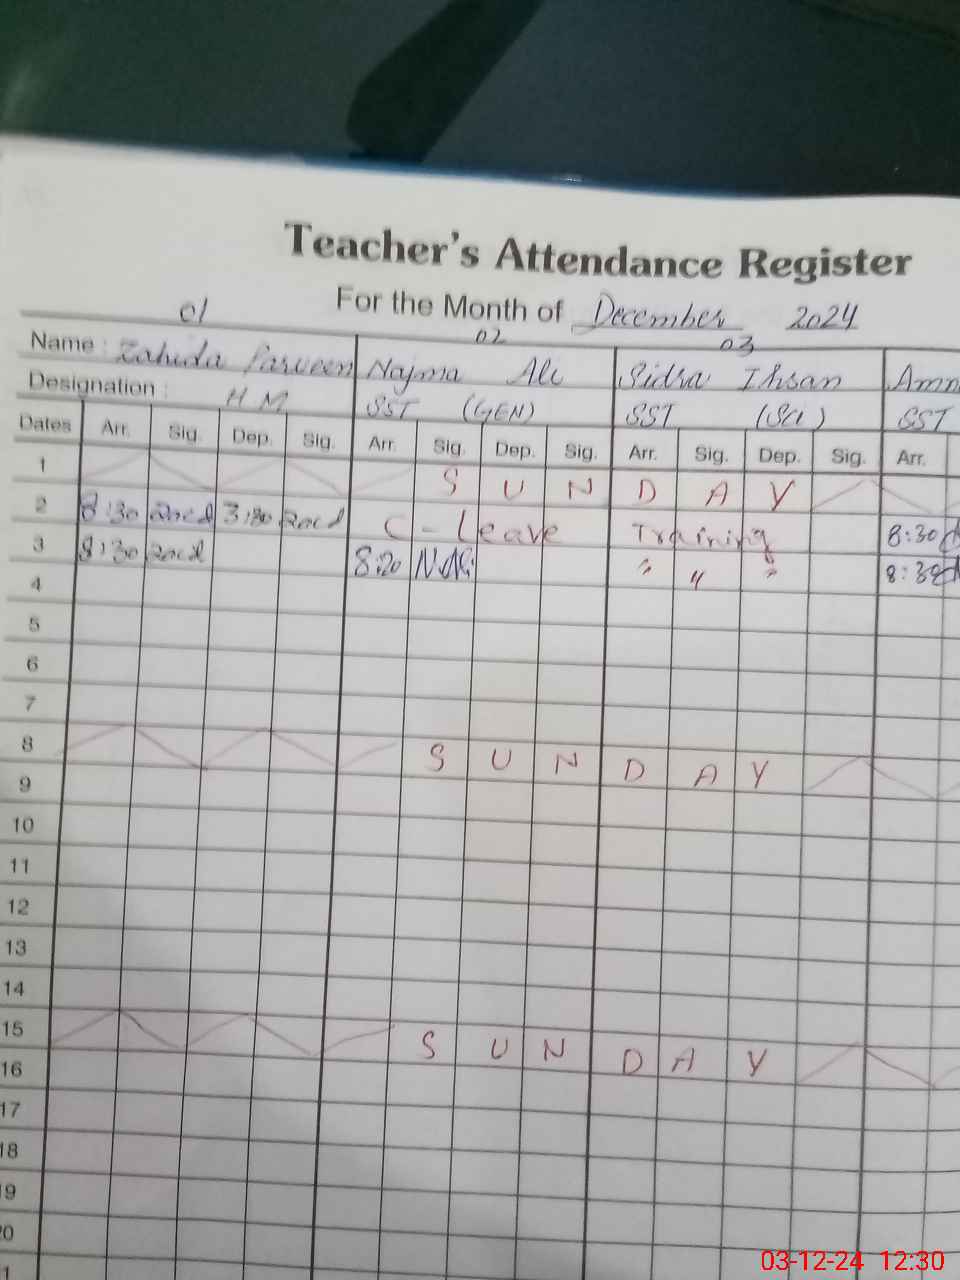 Teacher's Attendance Register
For the Month of December 2024
01 02 03
Name : Zahida Parveen Najma Ali Sidra Ihsan Amn
Designation : H M SST (GEN) SST (Sci) SST
Dates Arr. Sig. Dep. Sig. Arr. Sig. Dep. Sig. Arr. Sig. Dep. Sig. Arr.
1 S U N D A Y
2 8:30 3:30 C - Leave Training 8:30
3 8:30 8:20 " " " 8:30
4
5
6
7
8 S U N D A Y
9
10
11
12
13
14
15 S U N D A Y
16
17
18
19
03-12-24 12:30